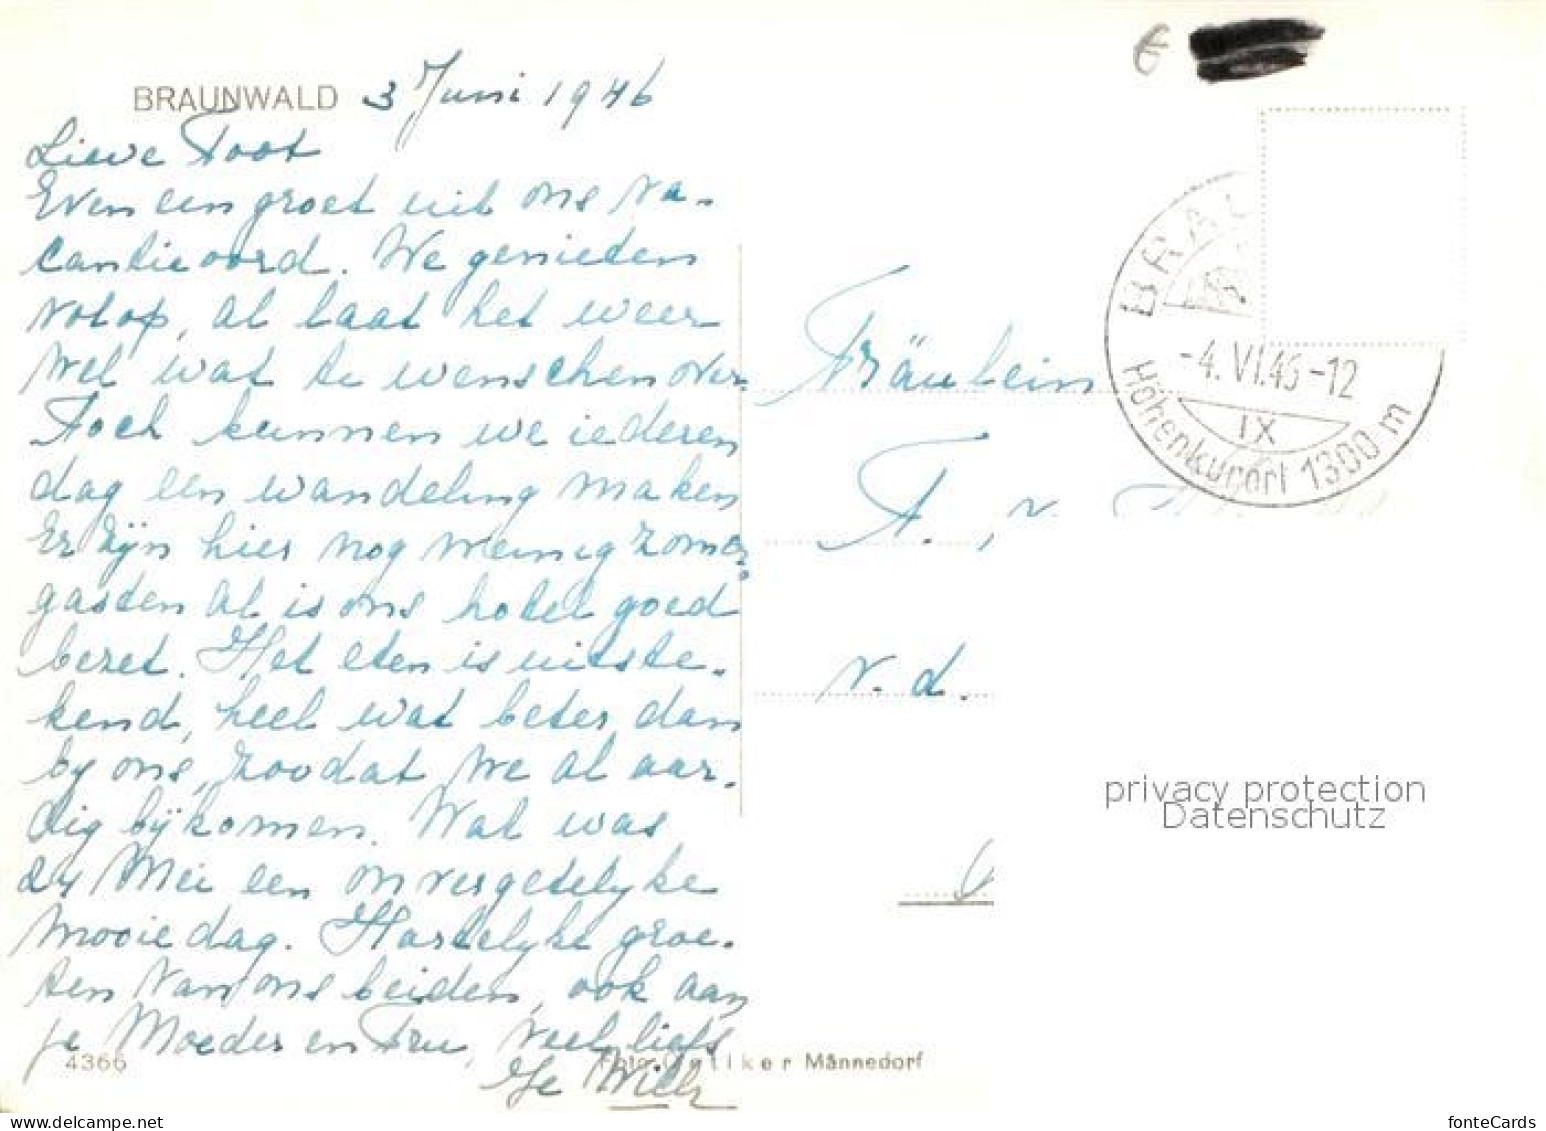 BRAUNWALD 3 Juni 1946
Lieve Toot
Even een groet uit ons va-
cantieoord. We genieten
volop, al laat het weer
wel wat te wenschen over.
Toch kunnen we iederen
dag een wandeling maken
Er zijn hier nog weinig zomer-
gasten al is ons hotel goed
bezet. Het eten is uitste-
kend, heel wat beter dan
bij ons, zoodat we al aar-
dig bijkomen. Wat was
24 Mei een onvergetelijke
mooie dag. Hartelijke groe-
ten van ons beiden, ook aan
je Moeder en Tru, veel liefs
Je Willy
4366
Foto Oetiker Männedorf
Fräulein
T. v.
v. d.
BRAU
-4.VI.46-12
IX
Höhenkurort 1300 m
privacy protection
Datenschutz
fonteCards